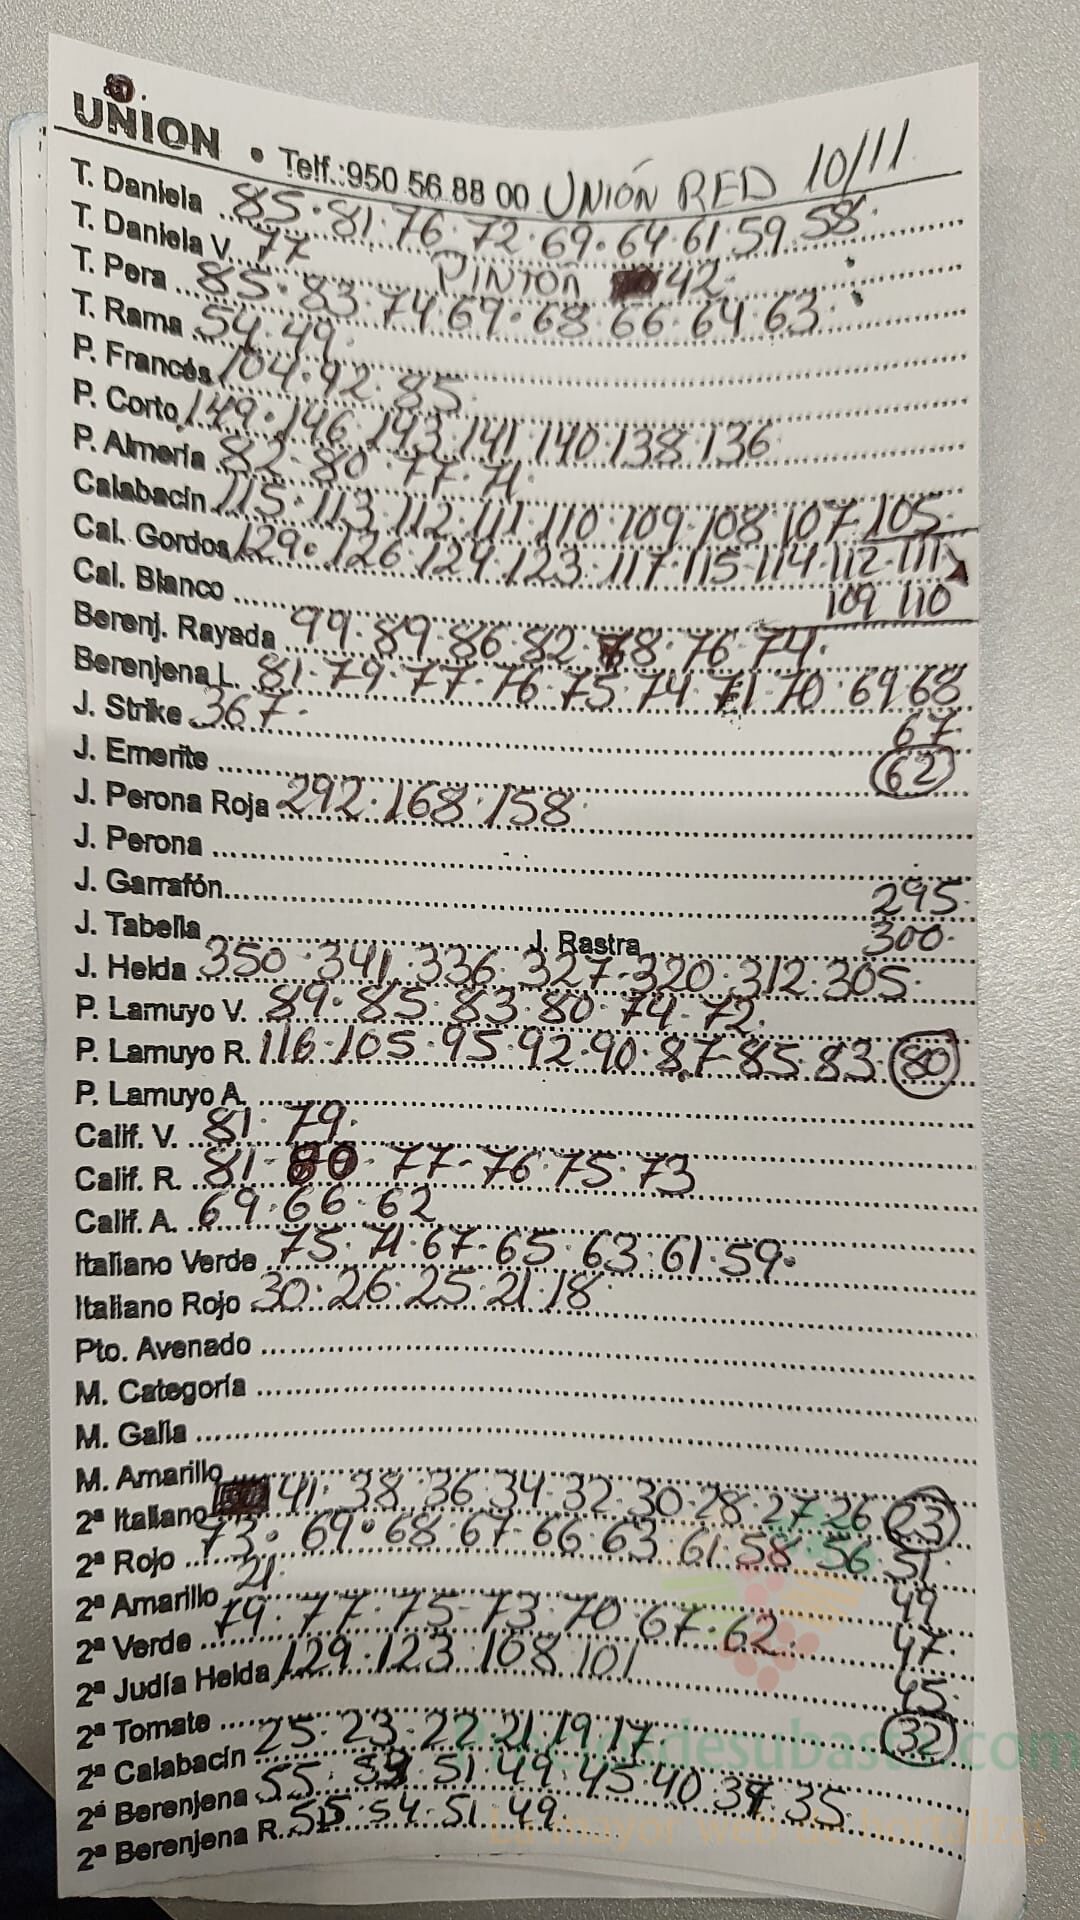 UNION • Telf.:950 56 88 00 UNIÓN RED 10/11
T. Daniela 85·81·76·72·69·64·61·59·58·
T. Daniela V. 77 PINTON 42·
T. Pera 85·83·74·69·68·66·64·63·
T. Rama 54·49·
P. Francés 104·92·85·
P. Corto 149·146·143·141·140·138·136
P. Almería 82-80·77·71·
Calabacín 115·113·112·111·110·109·108·107·105·
Cal. Gordos 129·126·124·123·117·115-114·112·111
Cal. Blanco 109 110
Berenj. Rayada 99·89·86·82·78·76·74·
Berenjena L. 81·79·77·76·75·74·71·70·69 68
J. Strike 367· 67·
J. Emerite 62
J. Perona Roja 292·168·158·
J. Perona
J. Garrafón 295·
J. Tabella J. Rastra 300·
J. Helda 350·341·336·327·320·312·305·
P. Lamuyo V. 89·85·83·80·74·72·
P. Lamuyo R. 116·105·95·92·90·87·85·83·80
P. Lamuyo A.
Calif. V. 81·79·
Calif. R. 81-80·77-76·75·73
Calif. A. 69·66·62
Italiano Verde 75·71·67-65·63·61·59·
Italiano Rojo 30·26·25·21·18·
Pto. Avenado
M. Categoría
M. Galia
M. Amarillo
2ª Italiano 41·38·36·34·32·30·28·27·26 23
2ª Rojo 73·69·68·67·66·63·61·58·56 51
2ª Amarillo 21· 49
2ª Verde 79·77·75-73·70·67·62· 47
2ª Judía Helda 129·123·108·101 45·
2ª Tomate 32
2ª Calabacín 25·23·22·21·19·17
2ª Berenjena 55· 51·49·45·40·35·
2ª Berenjena R. 55·54·51·49·
Preciosdesubasta.com
La mayor web de hortalizas